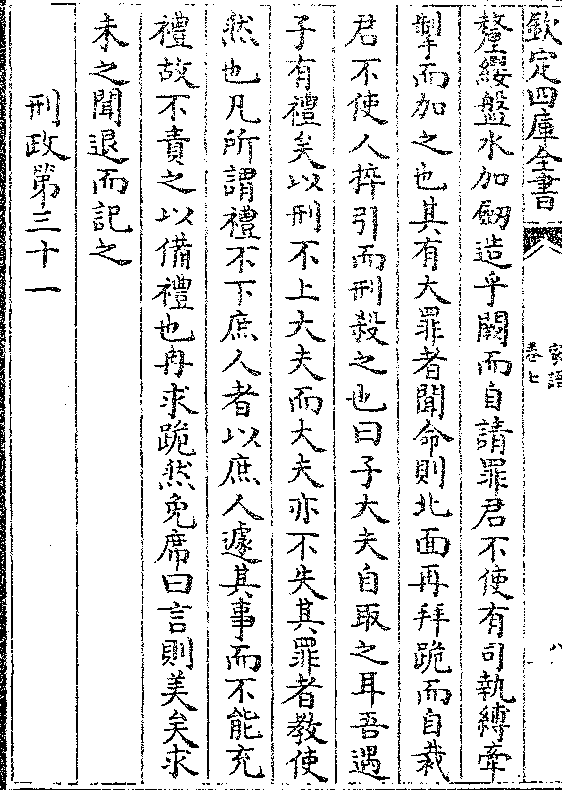 欽定四庫全書
家語
卷七
八
釐纓盤水加劒造乎闕而自請罪君不使有司執縛牽
掣而加之也其有大罪者聞命則北面再拜跪而自裁
君不使人捽引而刑殺之也曰子大夫自取之耳吾遇
子有禮矣以刑不上大夫而大夫亦不失其罪者教使
然也凡所謂禮不下庶人者以庶人遽其事而不能充
禮故不責之以備禮也冉求跪然免席曰言則美矣求
未之聞退而記之
刑政第三十一